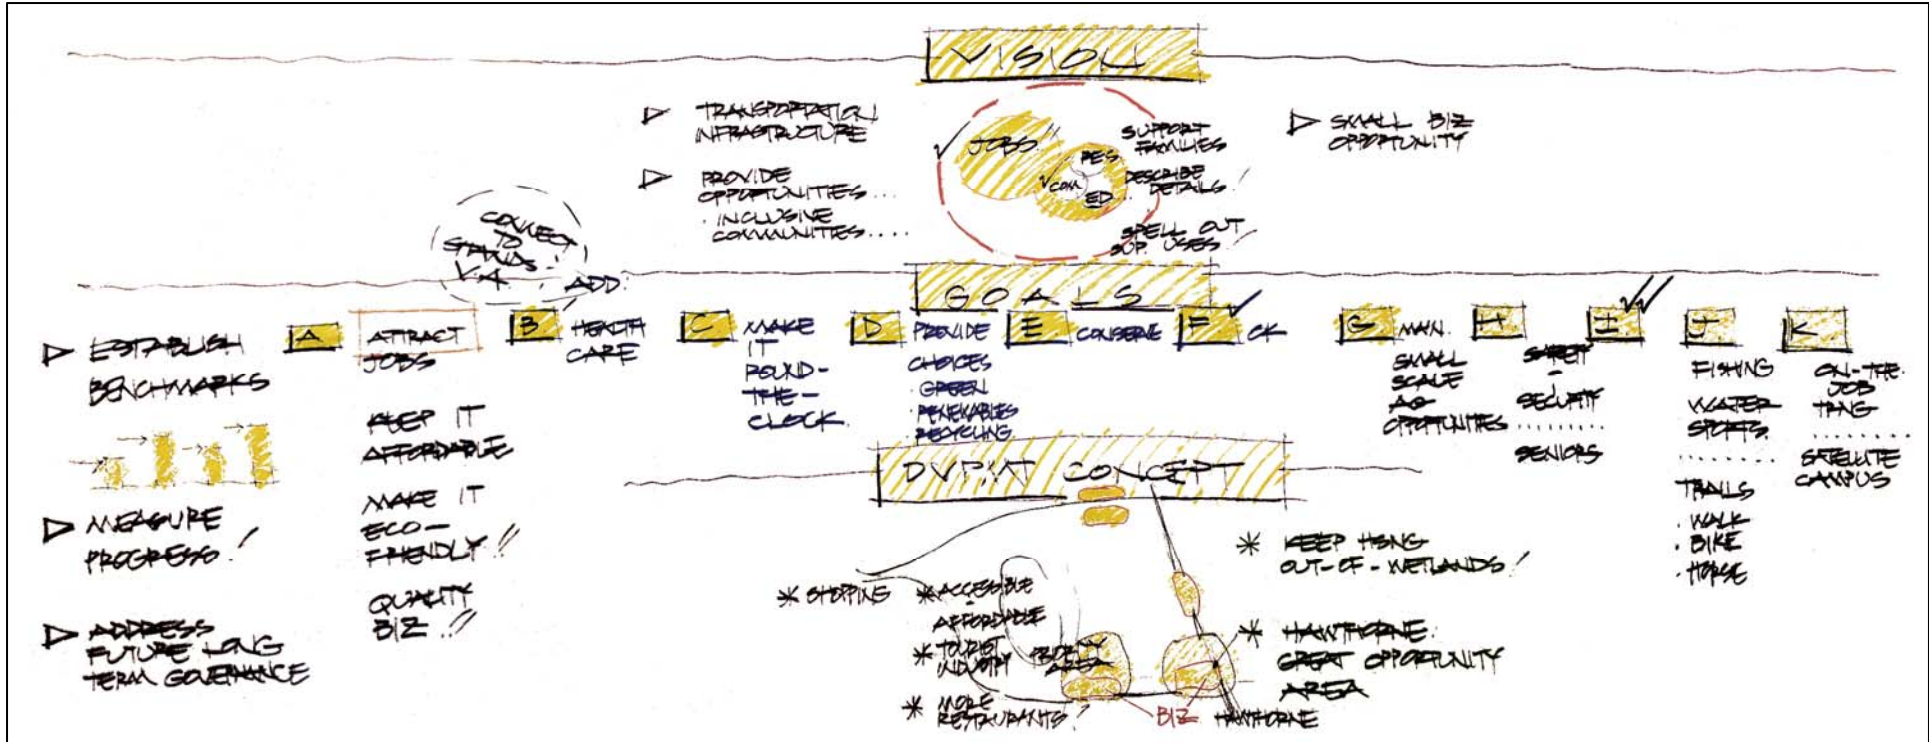 VISION
▷ TRANSPORTATION
INFRASTRUCTURE
▷ PROVIDE
OPPORTUNITIES...
· INCLUSIVE
COMMUNITIES....
JOBS!!
RES
COM
ED
SUPPORT
FAMILIES
DESCRIBE
DETAILS!
SPELL OUT
SUP. USES!
▷ SMALL BIZ
OPPORTUNITY
CONNECT
TO
ADD:
GOALS
▷ ESTABLISH
BENCHMARKS
▷ MEASURE
PROGRESS!
▷ ADDRESS
FUTURE LONG
TERM GOVERNANCE
A
ATTRACT
JOBS
KEEP IT
AFFORDABLE
MAKE IT
ECO-
FRIENDLY!!
QUALITY
BIZ!!
B
HEALTH
CARE
C
MAKE
IT
ROUND-
THE-
CLOCK
D
PROVIDE
CHOICES
· GREEN
· RENEWABLES
· RECYCLING
E
CONSERVE
F
CK
G
MAIN.
SMALL
SCALE
AG
OPPORTUNITIES
H
SAFETY
-
SECURITY
.........
SENIORS
I
J
FISHING
WATER
SPORTS.
.........
TRAILS
· WALK
· BIKE
· HORSE
K
ON-THE-
JOB
TRNG
.........
SATELLITE
CAMPUS
DVPMT CONCEPT
* SHOPPING
* ACCESSIBLE
-
AFFORDABLE
* TOURIST
INDUSTRY
* MORE
RESTAURANTS!
AREA
BIZ
HAWTHORNE
* KEEP HSNG
OUT-OF-WETLANDS!
* HAWTHORNE:
GREAT OPPORTUNITY
AREA